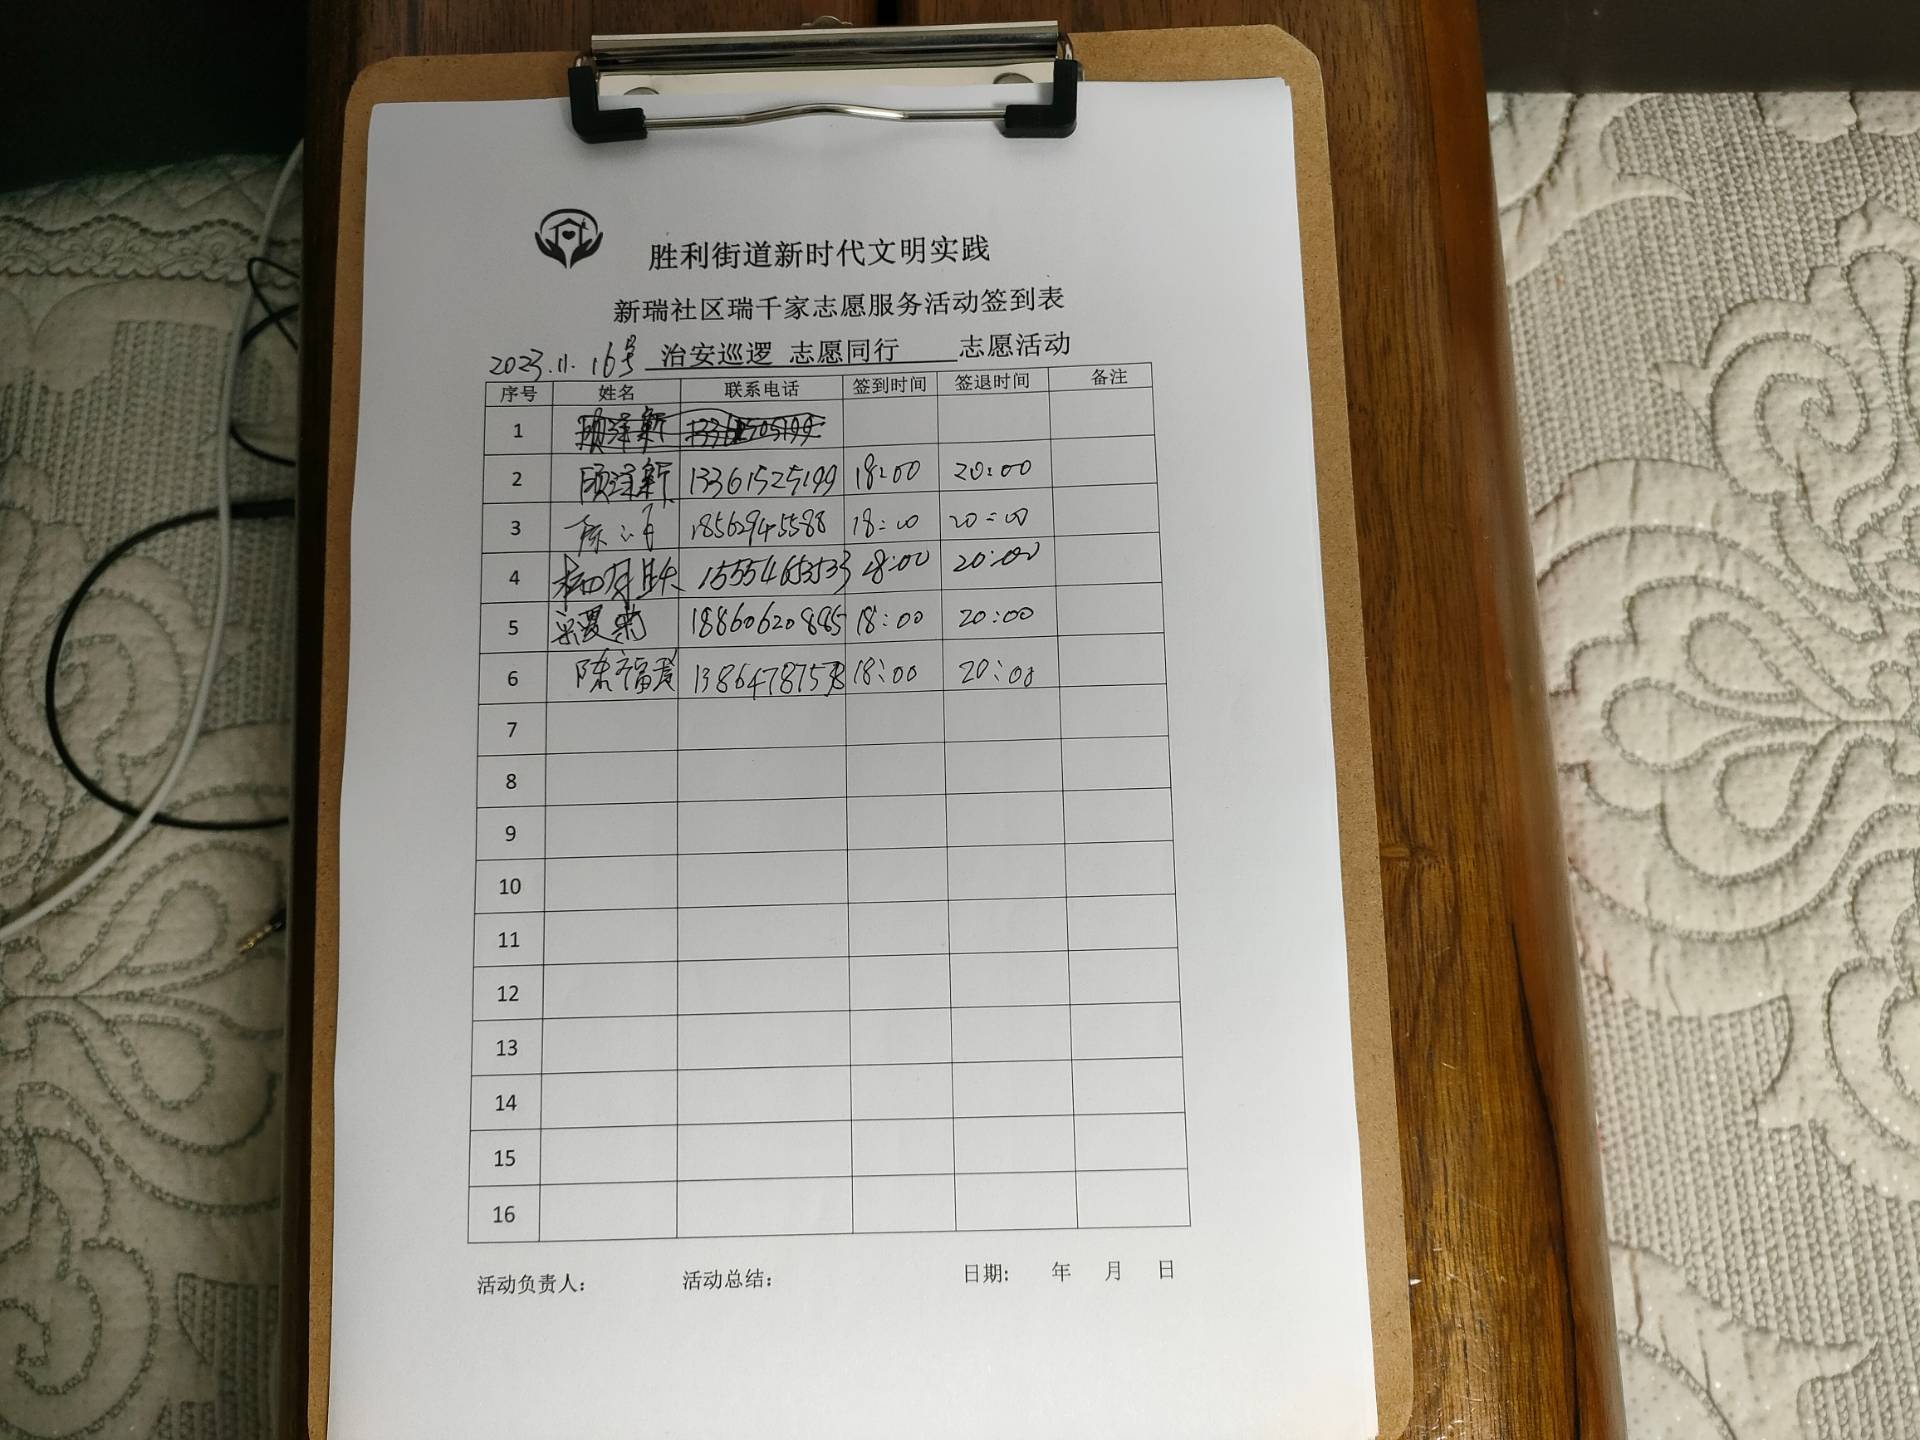 胜利街道新时代文明实践
新瑞社区瑞千家志愿服务活动签到表
2023.11.16号 治安巡逻 志愿同行 志愿活动
序号 姓名 联系电话 签到时间 签退时间 备注
1
2 顾泽新 13361525199 18:00 20:00
3 18562945588 18:00 20:00
4 15554653533 18:00 20:00
5 18860620895 18:00 20:00
6 陈福爱 13864787578 18:00 20:00
7
8
9
10
11
12
13
14
15
16
活动负责人: 活动总结: 日期: 年 月 日